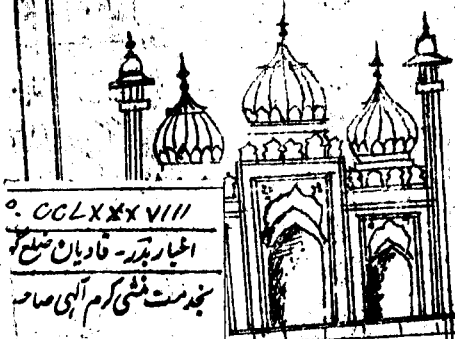 ۰. CCLXXXVIII
اخبار بدر - قادیان ضلع گو
بخدمت منشی کرم الٰہی صاحب